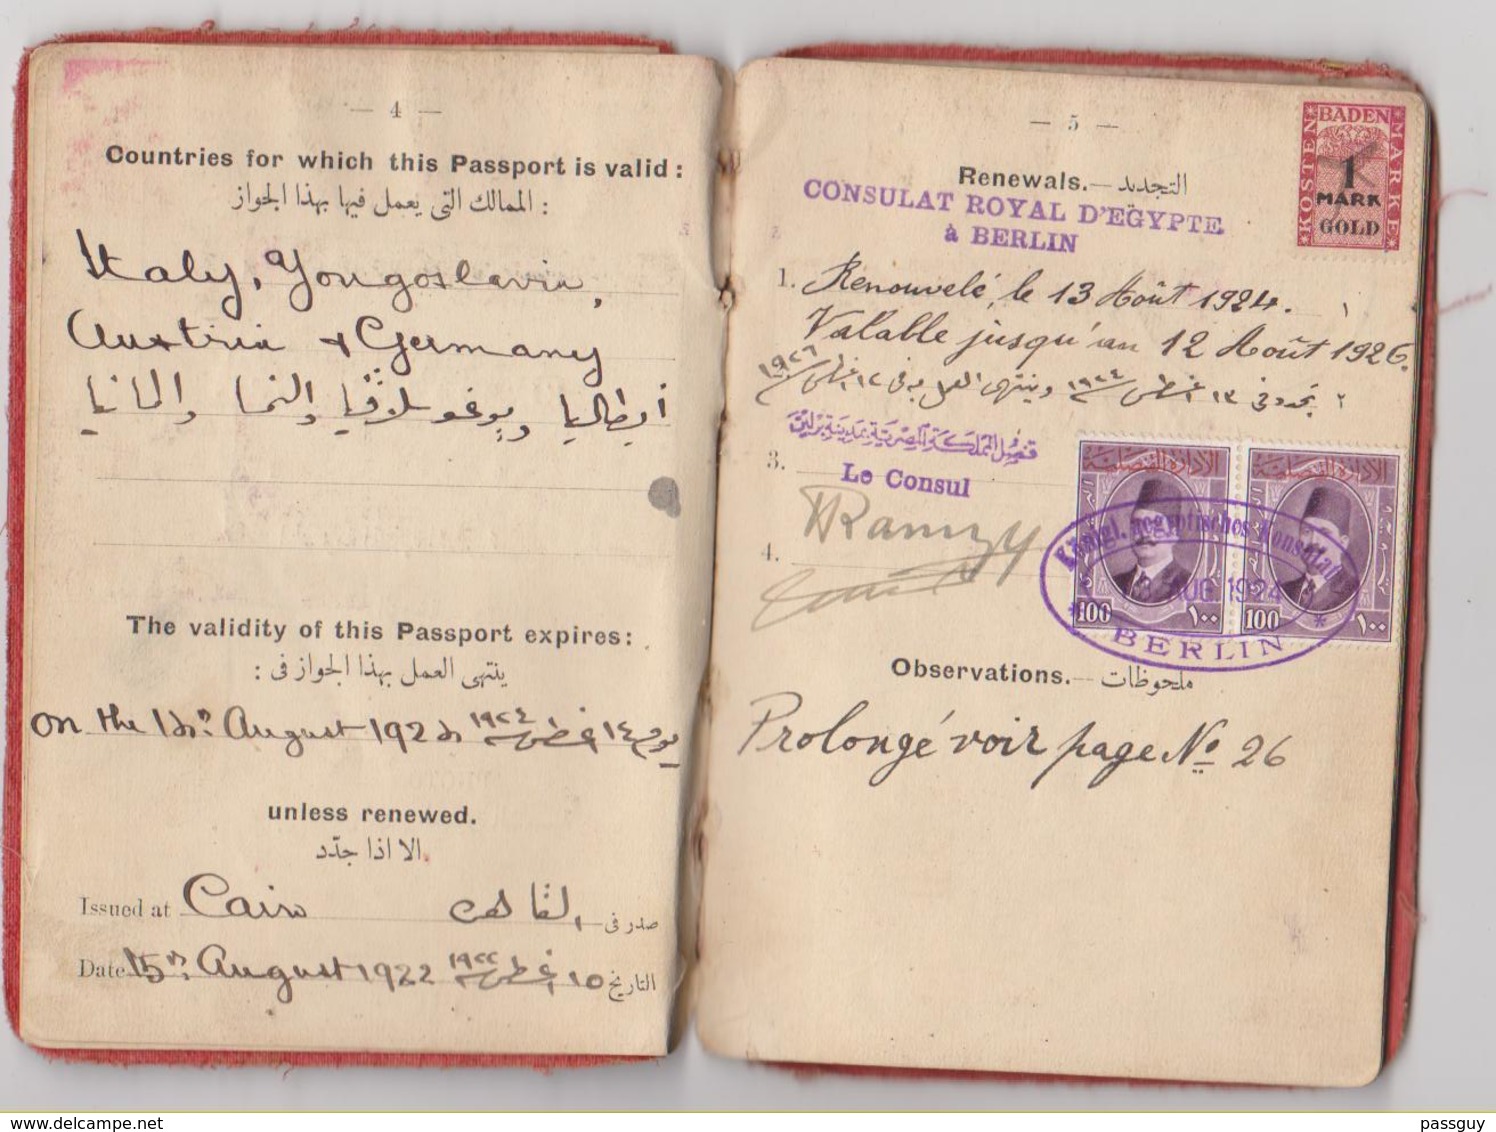 — 4 —
Countries for which this Passport is valid :
الممالك التى يعمل فيها بهذا الجواز :
Italy, Yougoslavia,
Austria & Germany
أيطاليا ويوغوسلاڤيا والنمسا والمانيا
The validity of this Passport expires:
ينتهى العمل بهذا الجواز فى :
on the August 192 يوم ١٤ اغسطس سنة ١٩٢٤
unless renewed.
الا اذا جدّد
Issued at Cairo القاهرة صدر فى
Date 15th August 1922 ١٥ اغسطس سنة ١٩٢٢ التاريخ
— 5 —
Renewals.— التجديد
CONSULAT ROYAL D'EGYPTE
à BERLIN
1. Renouvelé, le 13 Août 1924.
Valable jusqu'au 12 Août 1926.
٢ تجدد فى ١٣ اغسطس سنة ١٩٢٤ وينتهى العمل به فى ١٢ اغسطس سنة ١٩٢٦
قنصل المملكة المصرية بمدينة برلين
3.
Le Consul
Ramzy
4.
BADEN
KOSTEN
MARKE
1
MARK
GOLD
الادارة القنصلية
الادارة القنصلية
100 ١٠٠
100 ١٠٠
Königl. aegyptisches Konsulat
AUG 1924
* BERLIN *
Observations.— ملحوظات
Prolongé voir page No 26
delcampe.net
passguy